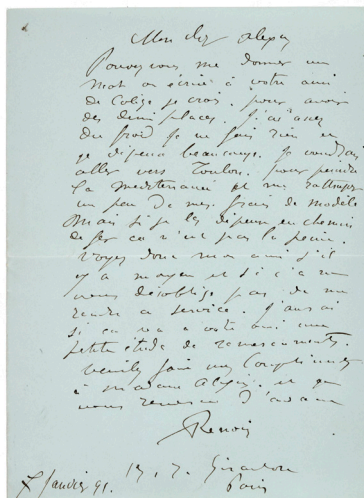 Mon cher Alexis
Pouvez vous me donner un
mot ou écrire à votre ami
de je crois. pour avoir
des demi places. J'ai assez
du froid je ne fais rien et
je dépense beaucoup. Je voudrais
aller vers Toulon. pour peindre
la mediterranée et me rattraper
un peu de mes frais de modèle
Mais si je les dépense en chemin
de fer ce n'est pas la peine.
Voyez donc mon ami s'il
y a moyen et si c'a ne
vous désoblige pas de me
rendre ce service. J'aurai
si ça va à votre ami une
petite étude de remerciements.
Veuillez faire mes compliments
à madame Alexis. et je
vous remercie d'avance
Renoir
Girardon
Janvier 91. Paris